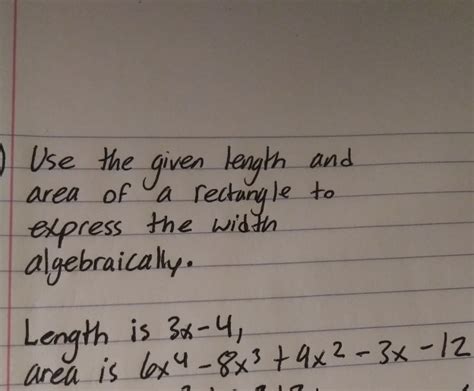 ) Use the given length and
area of a rectangle to
express the width
algebraically.
Length is 3x-4,
area is 6x⁴-8x³+9x²-3x-12